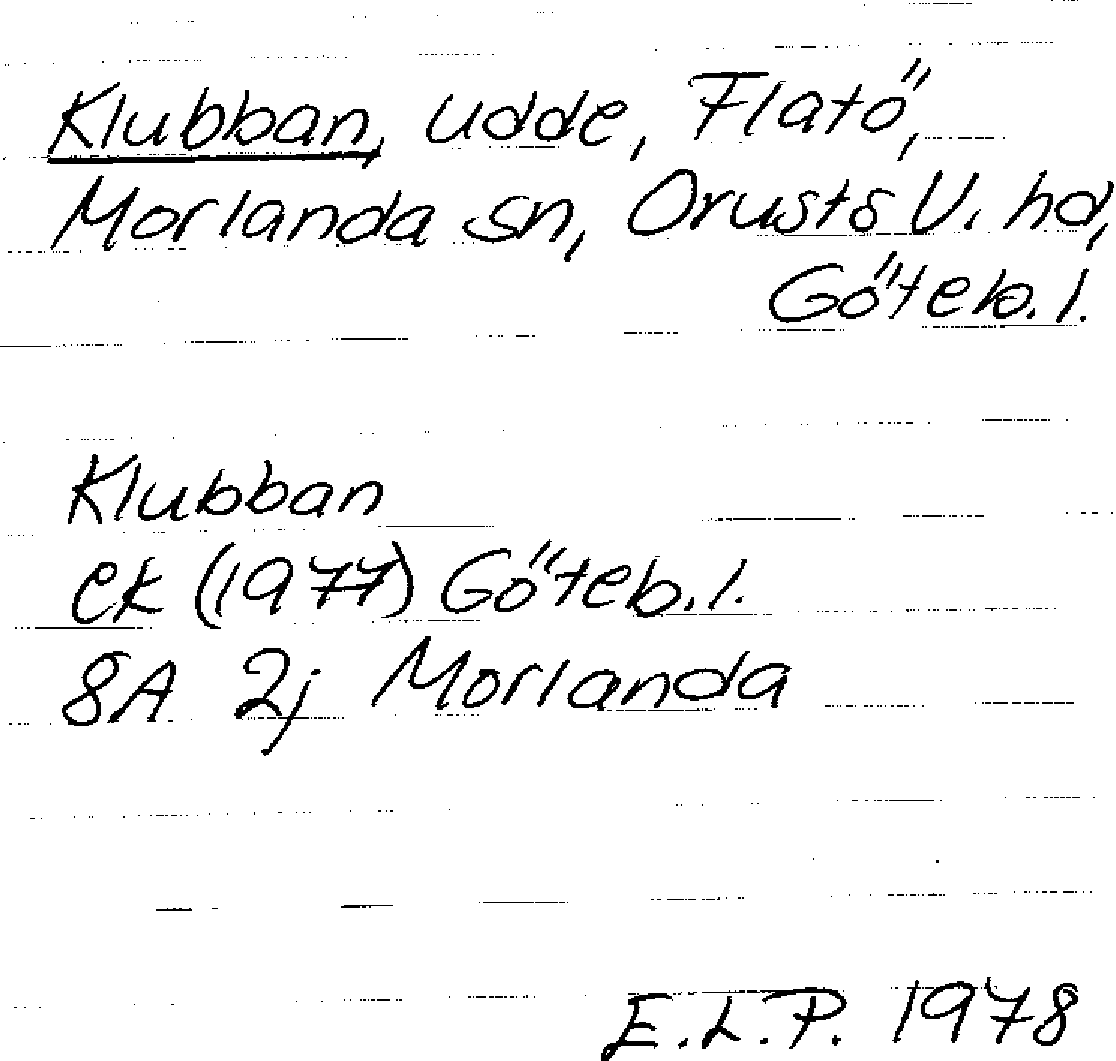 Klubban, udde, Flatö,
Morlanda sn, Orusts V. hd,
Göteb. l.
Klubban
ek (1977) Göteb. l.
8A 2j Morlanda
E.L.P. 1978